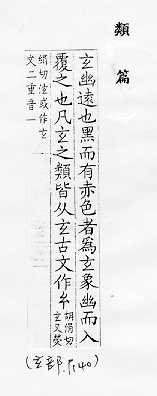 類篇
玄幽遠也黑而有赤色者爲玄象幽而入
覆之也凡玄之類皆从玄古文作𢆯胡涓切
玄又熒
絹切泫或作玄
文二重音一
(玄部.P.140)